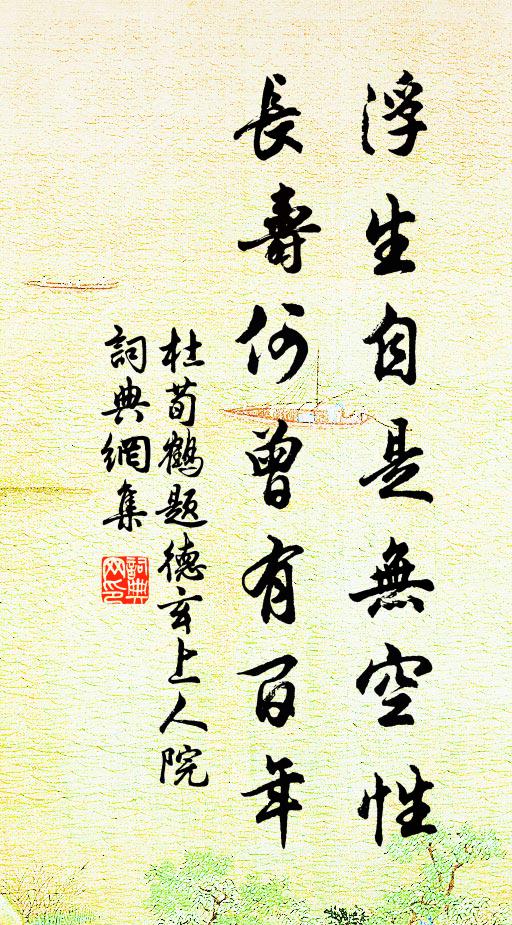 浮生自是無空性
長壽何曾有百年
杜荀鶴題德玄上人院
詞典網集
詞典网印